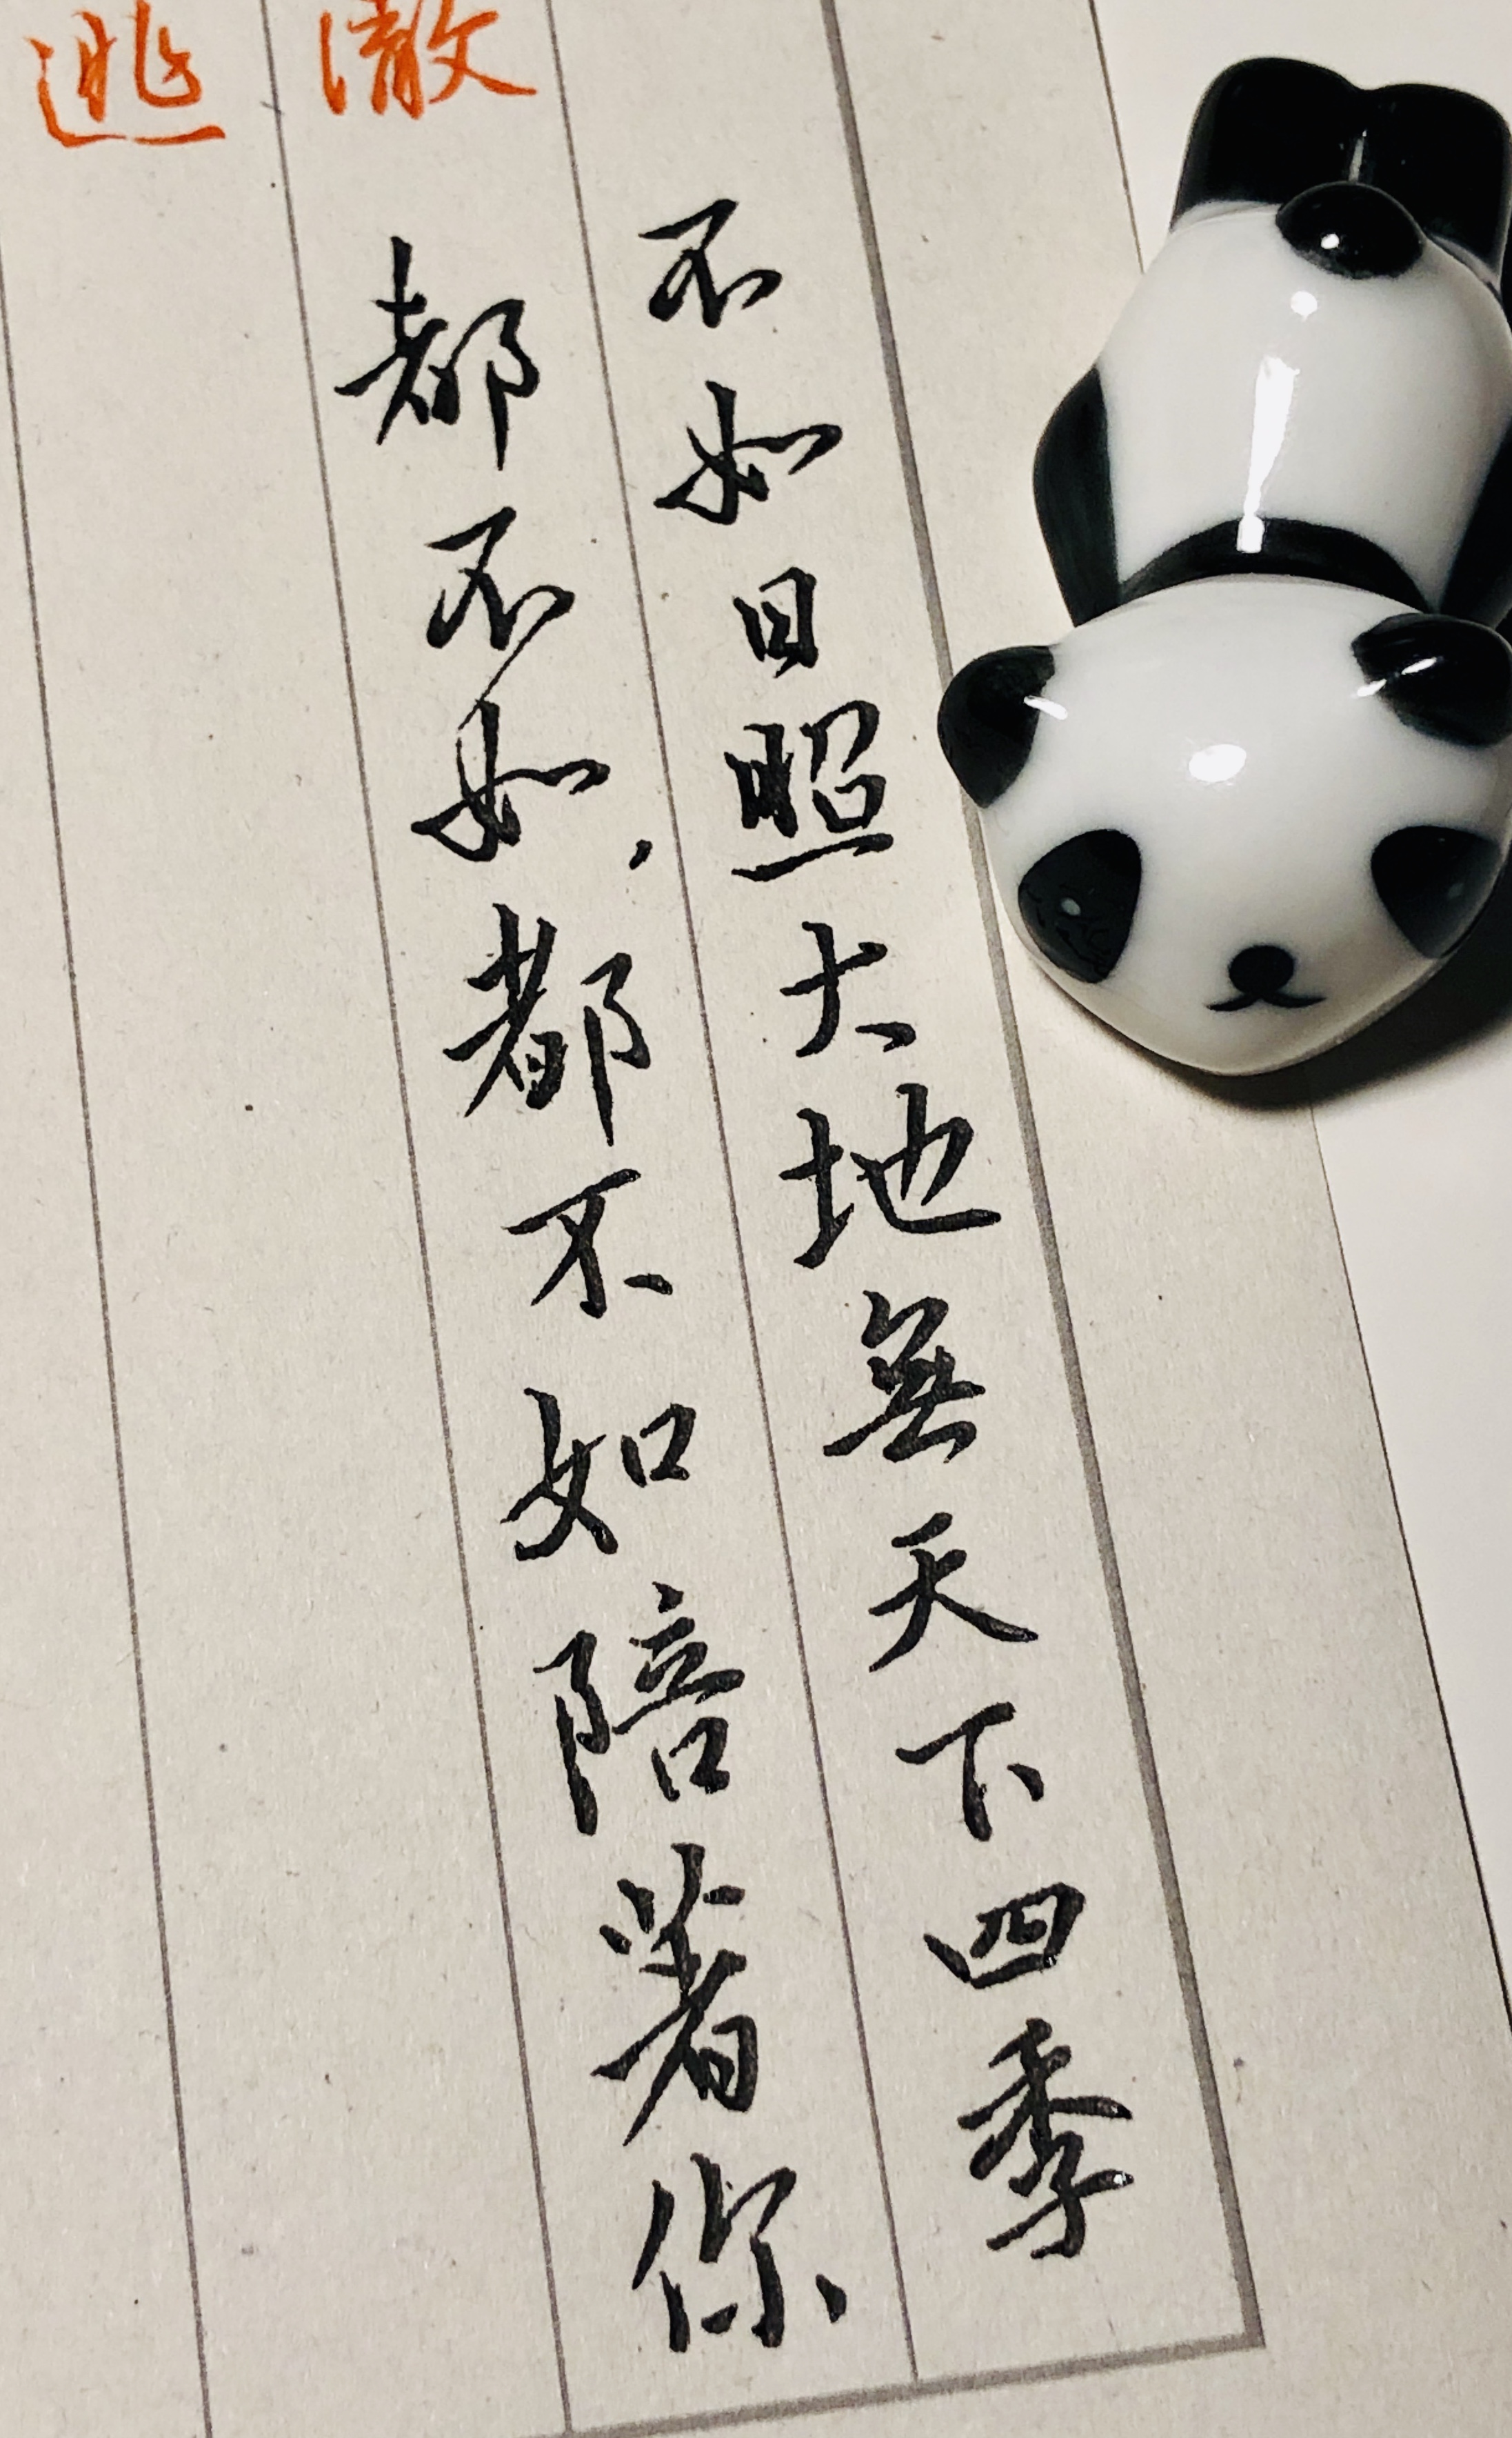 不如日照大地無天下四季
都不如，都不如陪著你
澈
逃